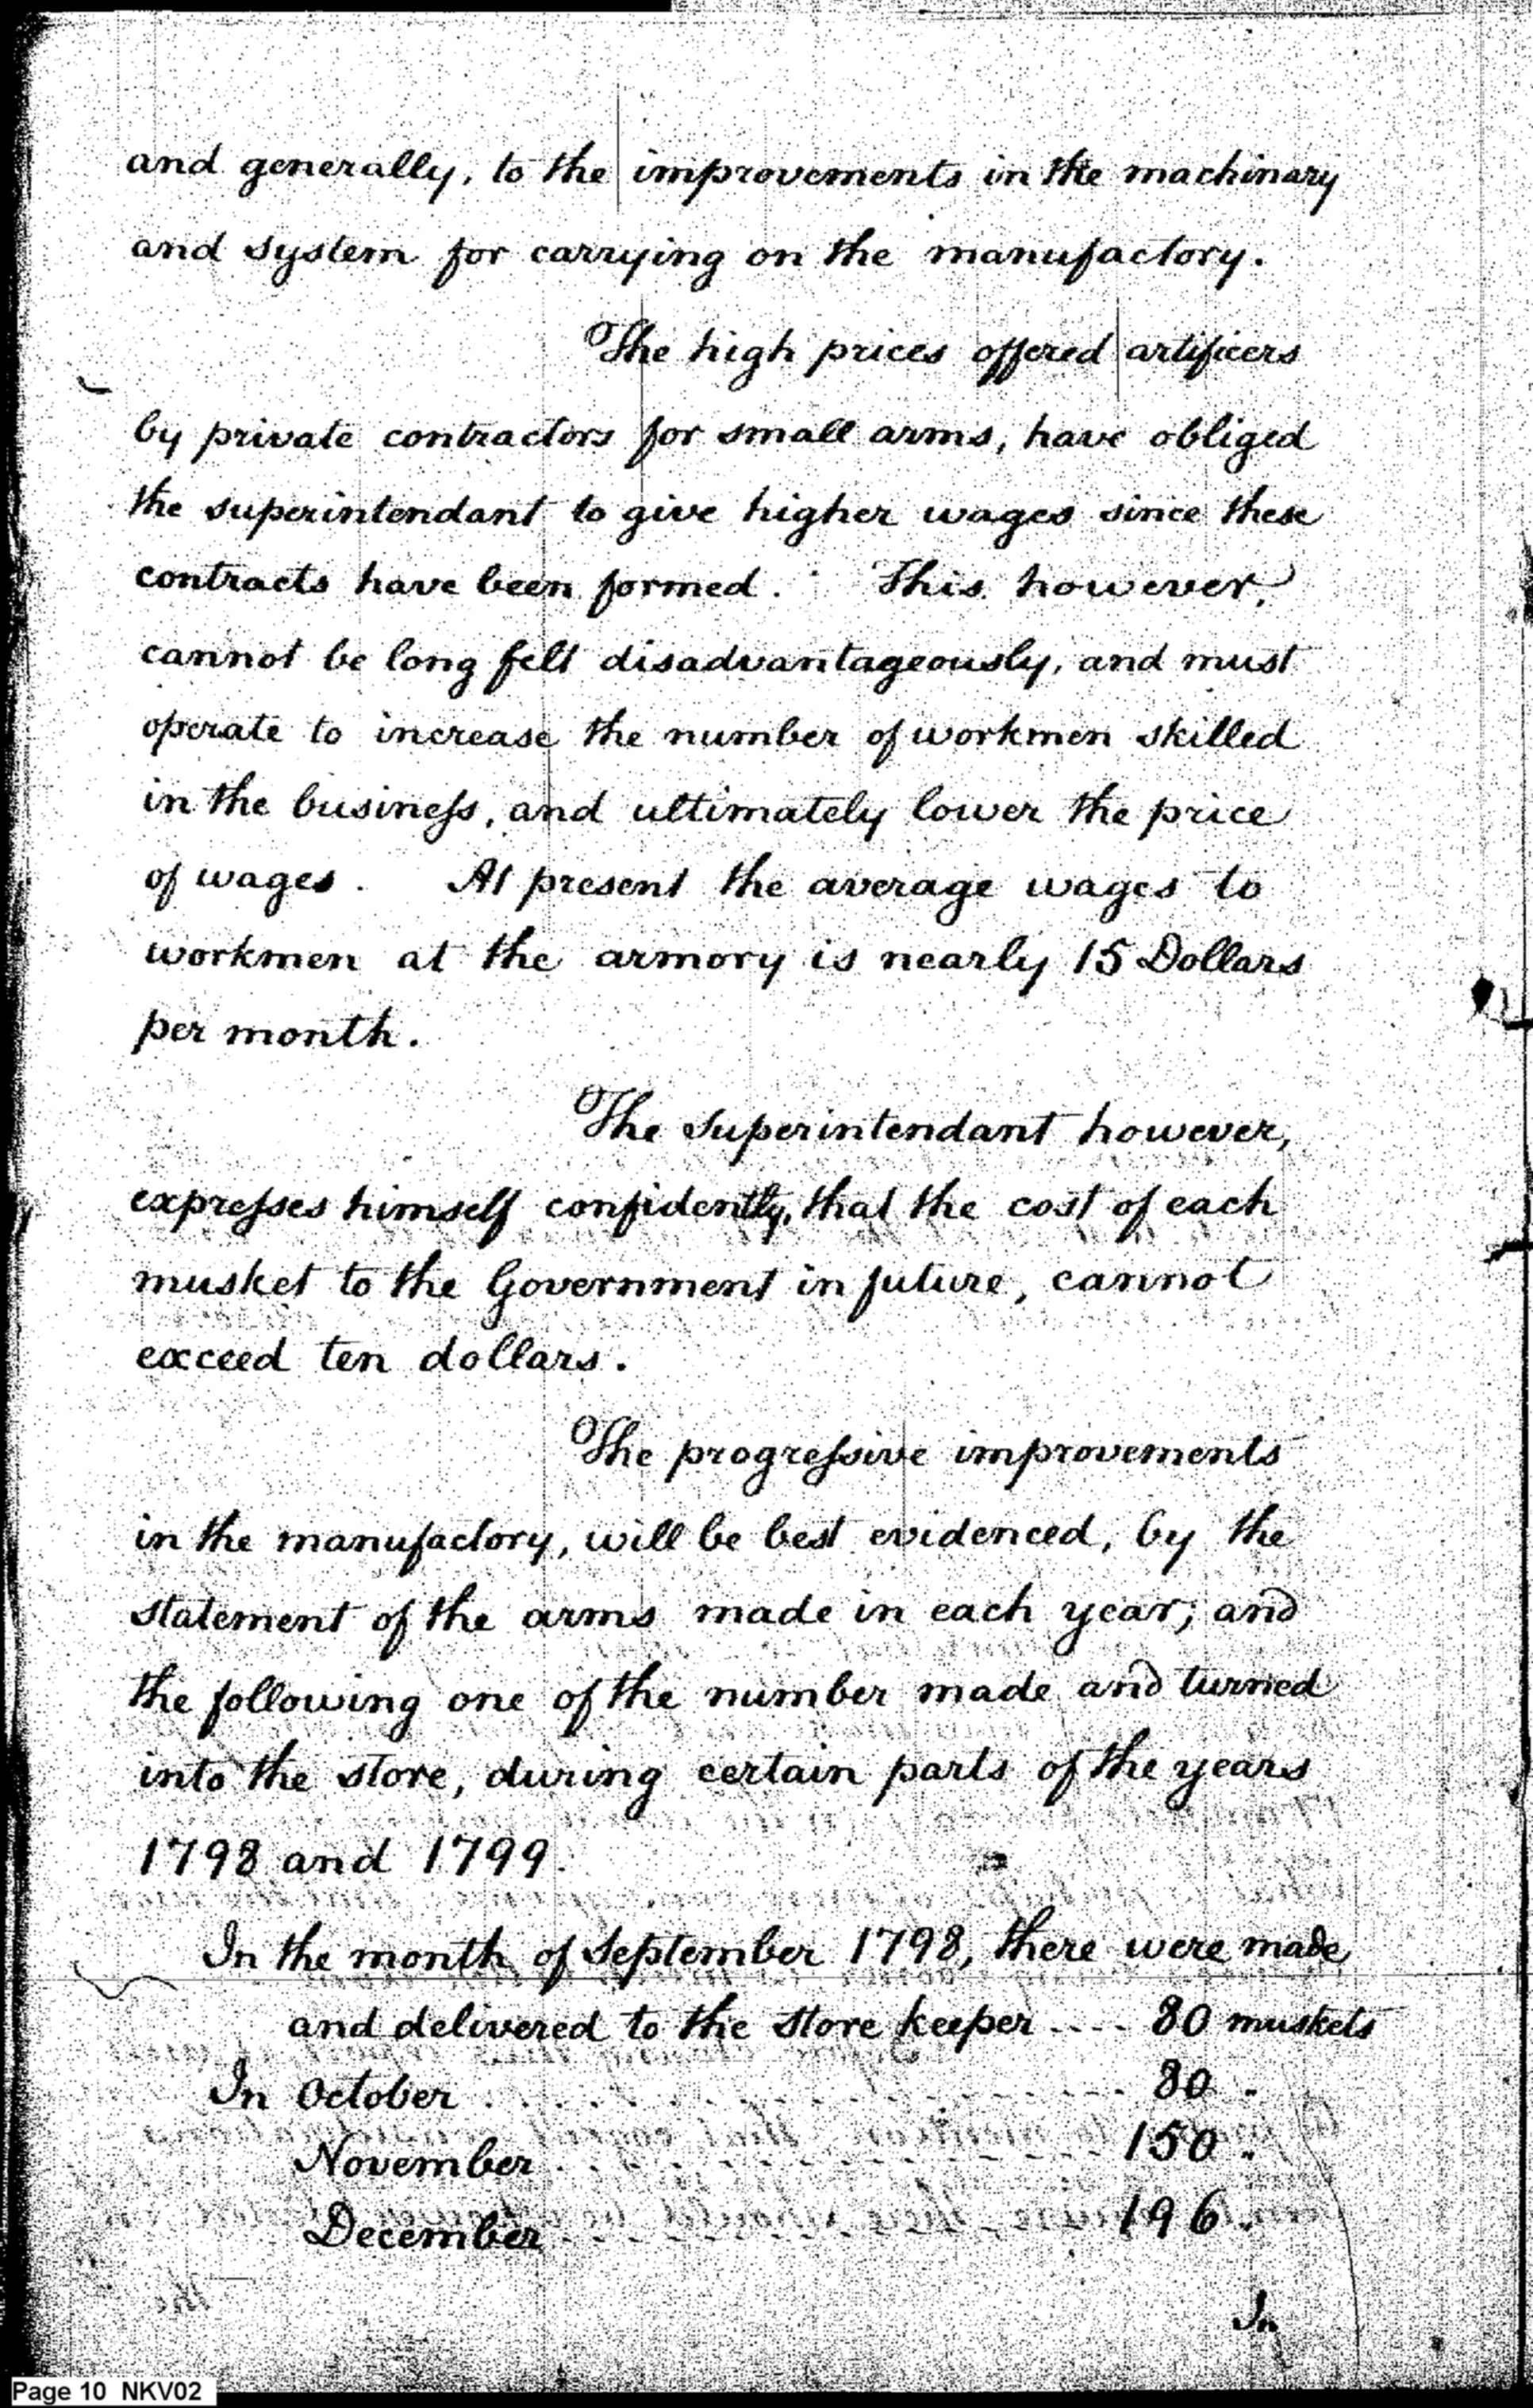 and generally, to the improvements in the machinary
and system for carrying on the manufactory.
The high prices offered artificers
by private contractors for small arms, have obliged
the superintendant to give higher wages since these
contracts have been formed. This however,
cannot be long felt disadvantageously, and must
operate to increase the number of workmen skilled
in the busineſs, and ultimately lower the price
of wages. At present the average wages to
workmen at the armory is nearly 15 Dollars
per month.
The Superintendant however,
expreſses himself confidently, that the cost of each
musket to the Government in future, cannot
exceed ten dollars.
The progreſsive improvements
in the manufactory, will be best evidenced, by the
statement of the arms made in each year; and
the following one of the number made and turned
into the store, during certain parts of the years
1798 and 1799.
In the month of September 1798, there were made
and delivered to the store keeper .... 80 muskets
In October . . . . . . . . . . . . 80 .
November . . . . . . . . . . . . 150 .
December . . . . . . . . . . . . 196 .
In
Page 10 NKV02